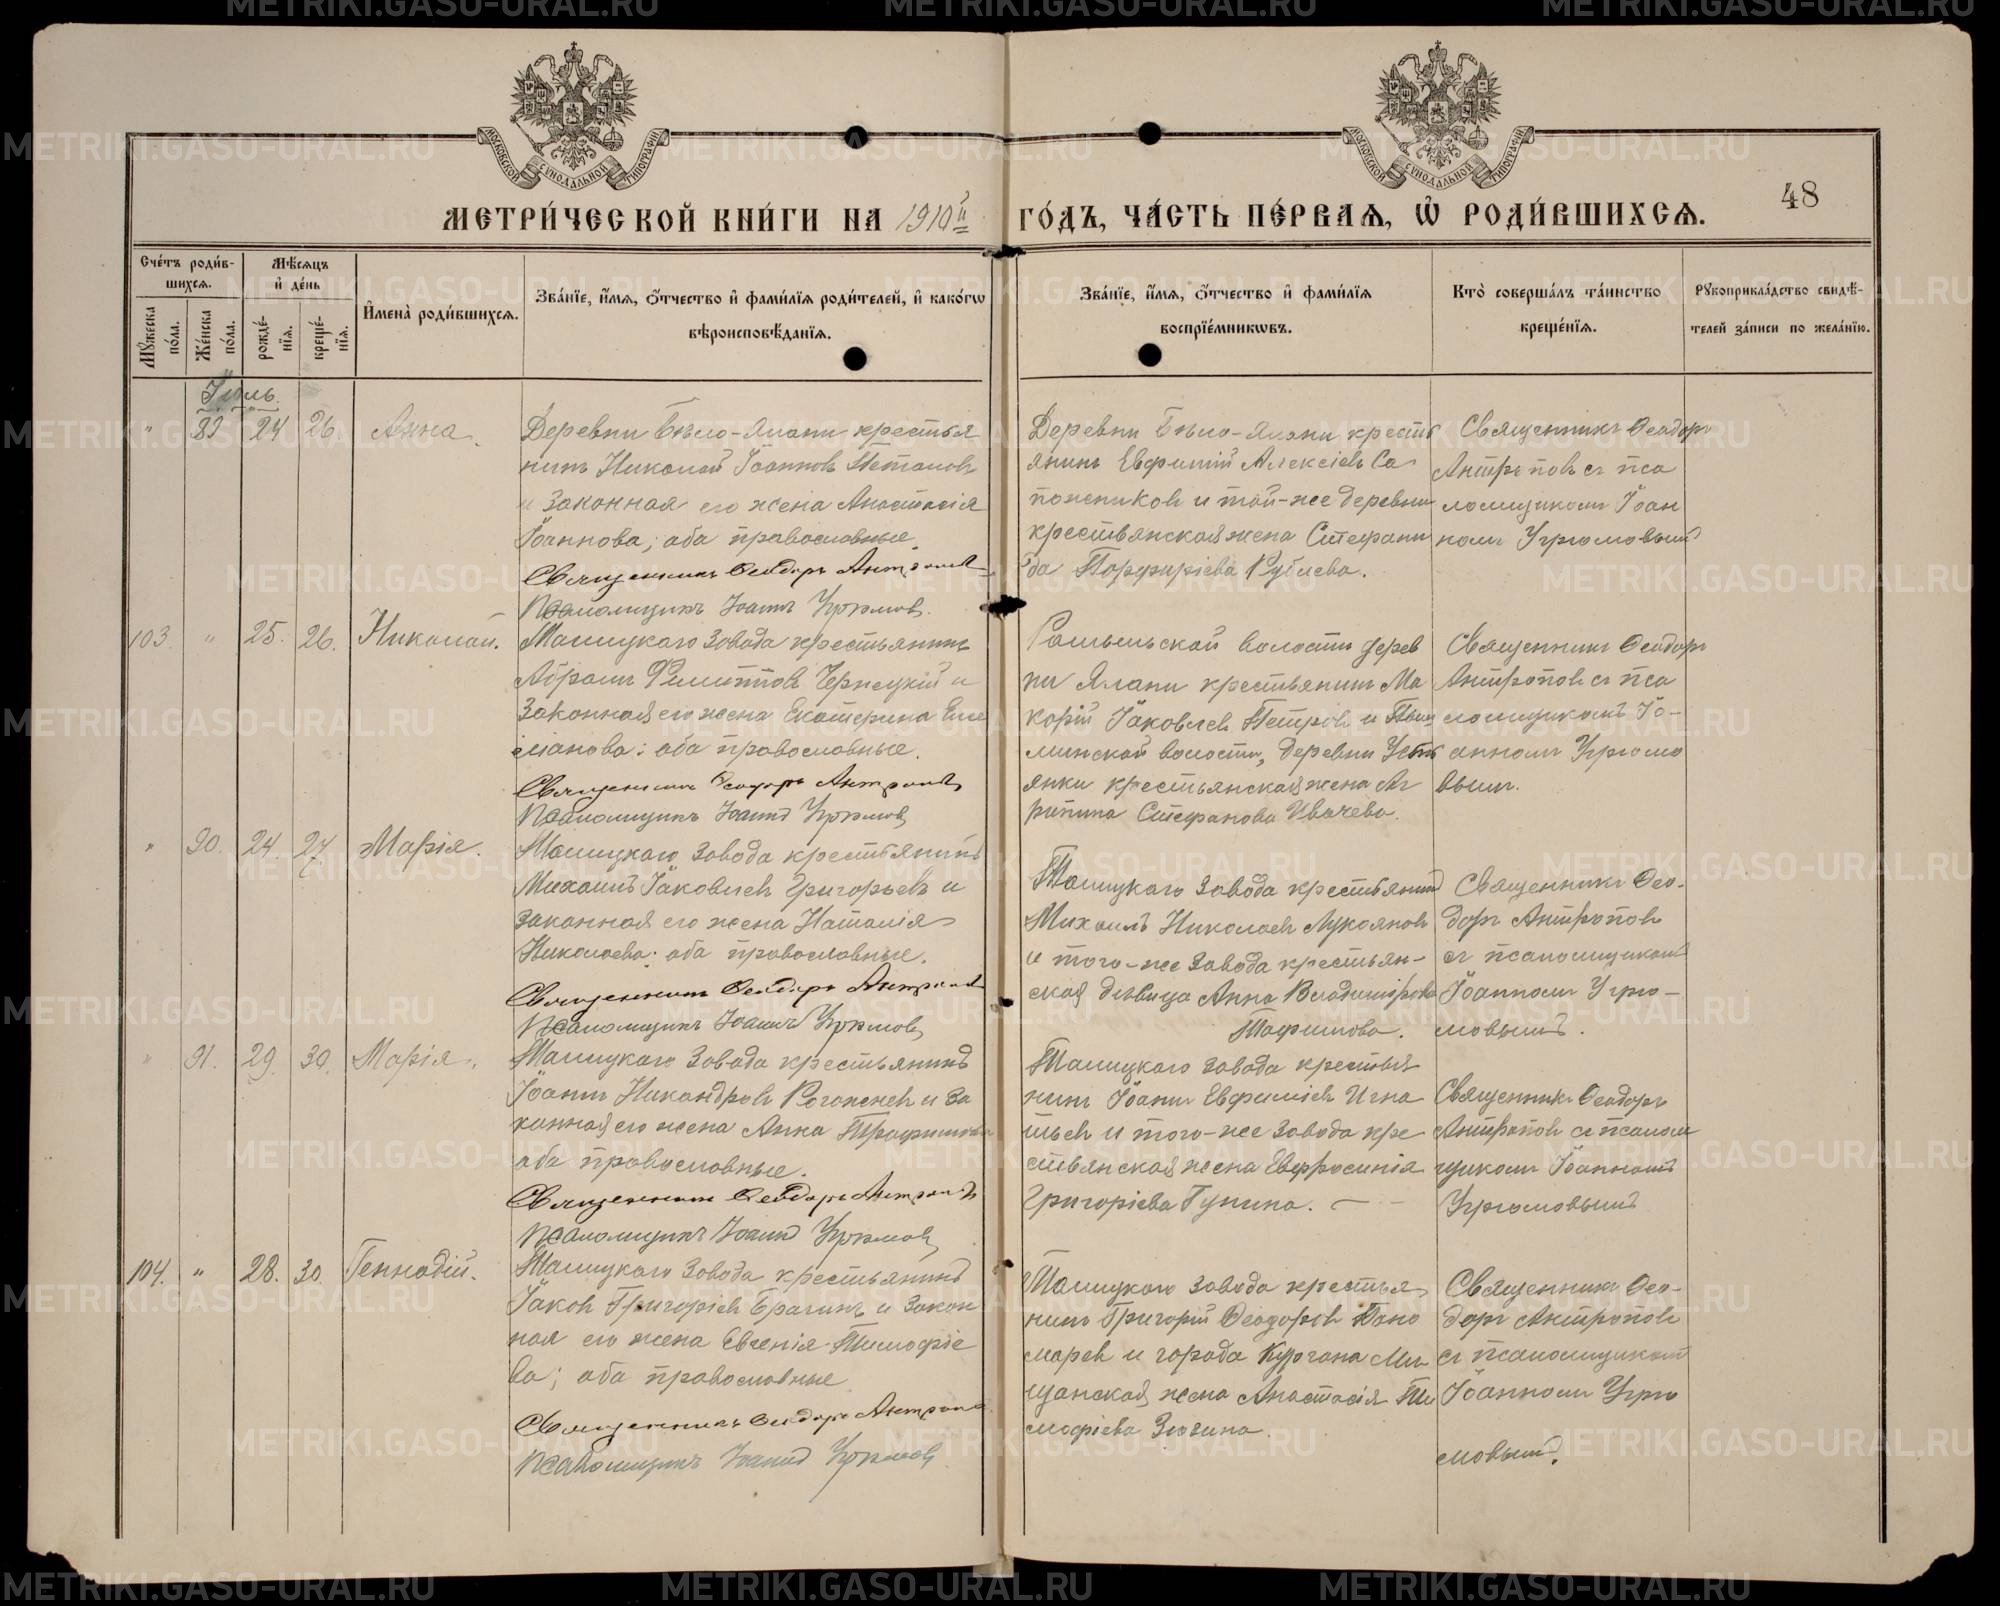 МОСКОВСКОЙ СѴНОДАЛЬНОЙ ТИПОГРАФІИ
МОСКОВСКОЙ СѴНОДАЛЬНОЙ ТИПОГРАФІИ
48
МЕТРИ́ЧЕСКОЙ КНИ́ГИ НА 1910й ГО́ДЪ, ЧА́СТЬ ПЕ́РВАѦ, Ѡ҆ РОДИ́ВШИХСѦ.
Сче́тъ роди́в-
шихсѧ.
Мꙋ́жеска по́ла.
Же́нска по́ла.
Мѣ́сѧцъ
и҆ де́нь
рожде́-
нїѧ.
креще́-
нїѧ.
И҆мена̀ роди́вшихсѧ.
Зва́нїе, и҆́мѧ, ѻ҆́тчество и҆ фами́лїѧ роди́телей, и҆ како́гѡ
вѣроисповѣ́данїѧ.
Зва́нїе, и҆́мѧ, ѻ҆́тчество и҆ фами́лїѧ
воспрїе́мникѡвъ.
Кто̀ соверша́лъ та́инство
креще́нїѧ.
Рꙋкоприкла́дство свидѣ́-
телей за́писи по жела́нїю.
Іюль.
" 89 24 26. Анна.
Деревни Бѣло-Элани крестья
нинъ Николай Іоанновъ
и законная его жена Анастасія
Іоаннова; оба православные.
Священникъ Ѳеодоръ Антроповъ
Псаломщикъ Іоаннъ Угрюмовъ.
Деревни Бѣло-Элани кресть
янинъ Евфимій Алексіевъ Са
пожниковъ и той-же деревни
крестьянская жена Стефани
да Порфиріева Рублева.
Священникъ Ѳеодоръ
Антроповъ съ пса
ломщикомъ Іоан
номъ Угрюмовымъ
103. " 25. 26. Николай.
Талицкаго завода крестьянинъ
Абрамъ Филипповъ Чернецкій и
законная его жена Екатерина Еме
ліанова: оба православные.
Священникъ Ѳеодоръ Антроповъ
Псаломщикъ Іоаннъ Угрюмовъ
волости дерев
ни Элани крестьянинъ Ма
карій Іаковлевъ Петровъ и
минской волости, деревни
янки крестьянская жена Аг
рипина Стефанова Ивачева.
Священникъ Ѳеодоръ
Антроповъ съ пса
ломщикомъ Іо-
анномъ Угрюмо
вымъ.
" 90. 24. 27. Марія.
Талицкаго завода крестьянинъ
Михаилъ Іаковлевъ Григорьевъ и
законная его жена Наталія
Николаева: оба православные.
Священникъ Ѳеодоръ Антроповъ
Псаломщикъ Іоаннъ Угрюмовъ
Талицкаго завода крестьянинъ
Михаилъ Николаевъ Лукояновъ
и того-же завода крестьян-
ская дѣвица Анна Владимірова
Трофимова.
Священникъ Ѳео-
доръ Антроповъ
съ псаломщикомъ
Іоанномъ Угрю-
мовымъ.
" 91. 29. 30. Марія.
Талицкаго завода крестьянинъ
Іоаннъ Никандровъ Рогожневъ и за
конная его жена Анна Трофимова
оба православные.
Священникъ Ѳеодоръ Антроповъ
Псаломщикъ Іоаннъ Угрюмовъ
Талицкаго завода крестья
нинъ Іоаннъ Евфиміевъ Игна
тьевъ и того-же завода кре
стьянская жена Евфросинія
Григоріева Гунина.
Священникъ Ѳеодоръ
Антроповъ съ псалом
щикомъ Іоанномъ
Угрюмовымъ
104. " 28. 30. Геннадій.
Талицкаго завода крестьянинъ
Іаковъ Григоріевъ Брагинъ и закон
ная его жена Евгенія Тимофіе
ва; оба православные
Священникъ Ѳеодоръ Антроповъ
Псаломщикъ Іоаннъ Угрюмовъ
Талицкаго завода крестья
нинъ Григорій Ѳеодоровъ Поно
маревъ и города Кургана Мѣ
щанская жена Анастасія Ти
мофіева Зюзина.
Священникъ Ѳео-
доръ Антроповъ
съ псаломщикомъ
Іоанномъ Угрю
мовымъ.
METRIKI.GASO-URAL.RU